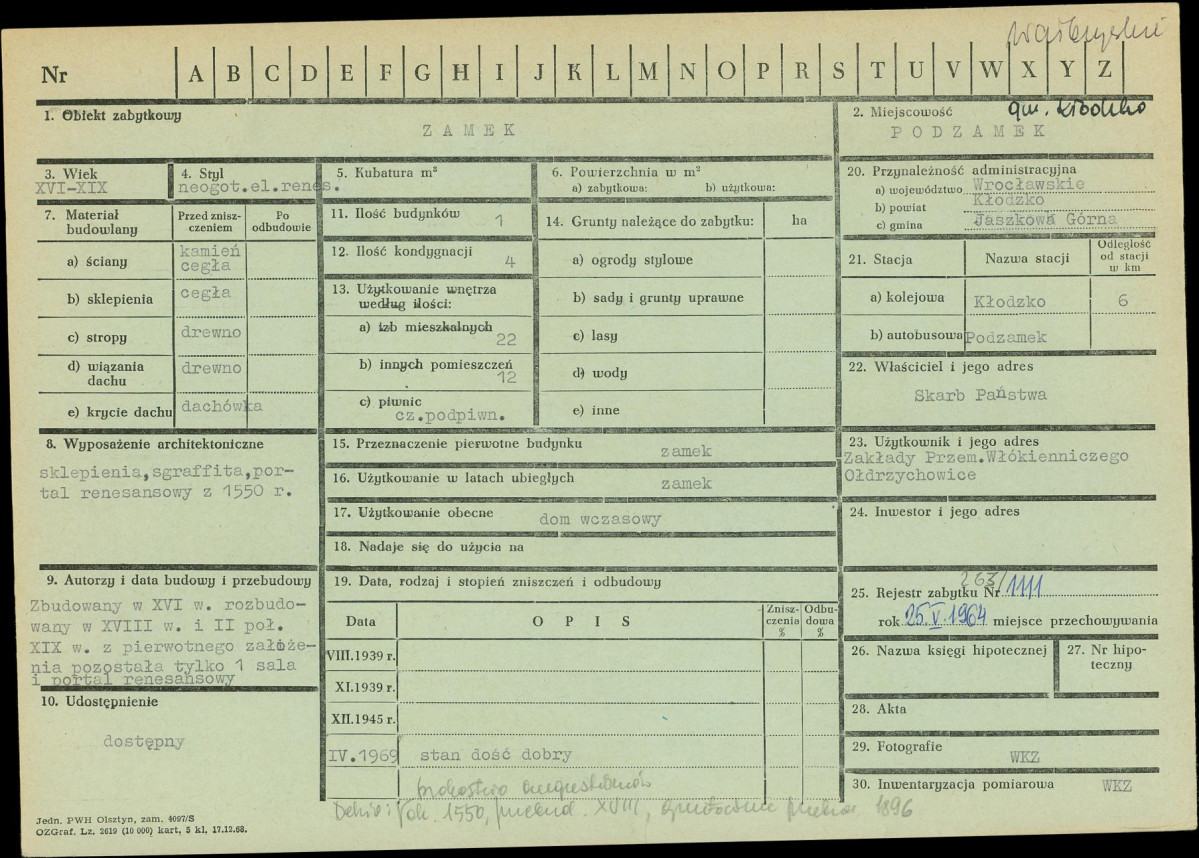 Nr A B C D E F G H I J K L M N O P R S T U V W X Y Z
1. Obiekt zabytkowy
ZAMEK
2. Miejscowość
gm. Kłodzko
PODZAMEK
3. Wiek
XVI-XIX
4. Styl
neogot.el.renes.
5. Kubatura m³
6. Powierzchnia w m²
a) zabytkowa: b) użytkowa:
20. Przynależność administracyjna
a) województwo Wrocławskie
b) powiat Kłodzko
c) gmina Jaszkowa Górna
7. Materiał budowlany
Przed zniszczeniem
Po odbudowie
a) ściany kamień cegła
b) sklepienia cegła
c) stropy drewno
d) wiązania dachu drewno
e) krycie dachu dachówka
11. Ilość budynków 1
12. Ilość kondygnacji 4
13. Użytkowanie wnętrza według ilości:
a) izb mieszkalnych 22
b) innych pomieszczeń 12
c) piwnic cz.podpiwn.
14. Grunty należące do zabytku: ha
a) ogrody stylowe
b) sady i grunty uprawne
c) lasy
d) wody
e) inne
21. Stacja
Nazwa stacji
Odległość od stacji w km
a) kolejowa Kłodzko 6
b) autobusowa Podzamek
22. Właściciel i jego adres
Skarb Państwa
8. Wyposażenie architektoniczne
sklepienia,sgraffita,por-
tal renesansowy z 1550 r.
15. Przeznaczenie pierwotne budynku zamek
16. Użytkowanie w latach ubiegłych zamek
17. Użytkowanie obecne dom wczasowy
18. Nadaje się do użycia na
23. Użytkownik i jego adres
Zakłady Przem.Włókienniczego
Ołdrzychowice
24. Inwestor i jego adres
9. Autorzy i data budowy i przebudowy
Zbudowany w XVI w. rozbudo-
wany w XVIII w. i II poł.
XIX w. z pierwotnego założe-
nia pozostała tylko 1 sala
i portal renesansowy
10. Udostępnienie
dostępny
19. Data, rodzaj i stopień zniszczeń i odbudowy
Data
OPIS
Zniszczenia %
Odbudowa %
VIII.1939 r.
XI.1939 r.
XII.1945 r.
IV.1969 stan dość dobry
25. Rejestr zabytku Nr 263/1111
rok 25.V.1964 miejsce przechowywania
26. Nazwa księgi hipotecznej
27. Nr hipoteczny
28. Akta
29. Fotografie WKZ
30. Inwentaryzacja pomiarowa WKZ
1550, XVIII, 1896
Jedn. PWH Olsztyn, zam. 4097/S
OZGraf. Lz. 2619 (10 000) kart, 5 kl. 17.12.68.